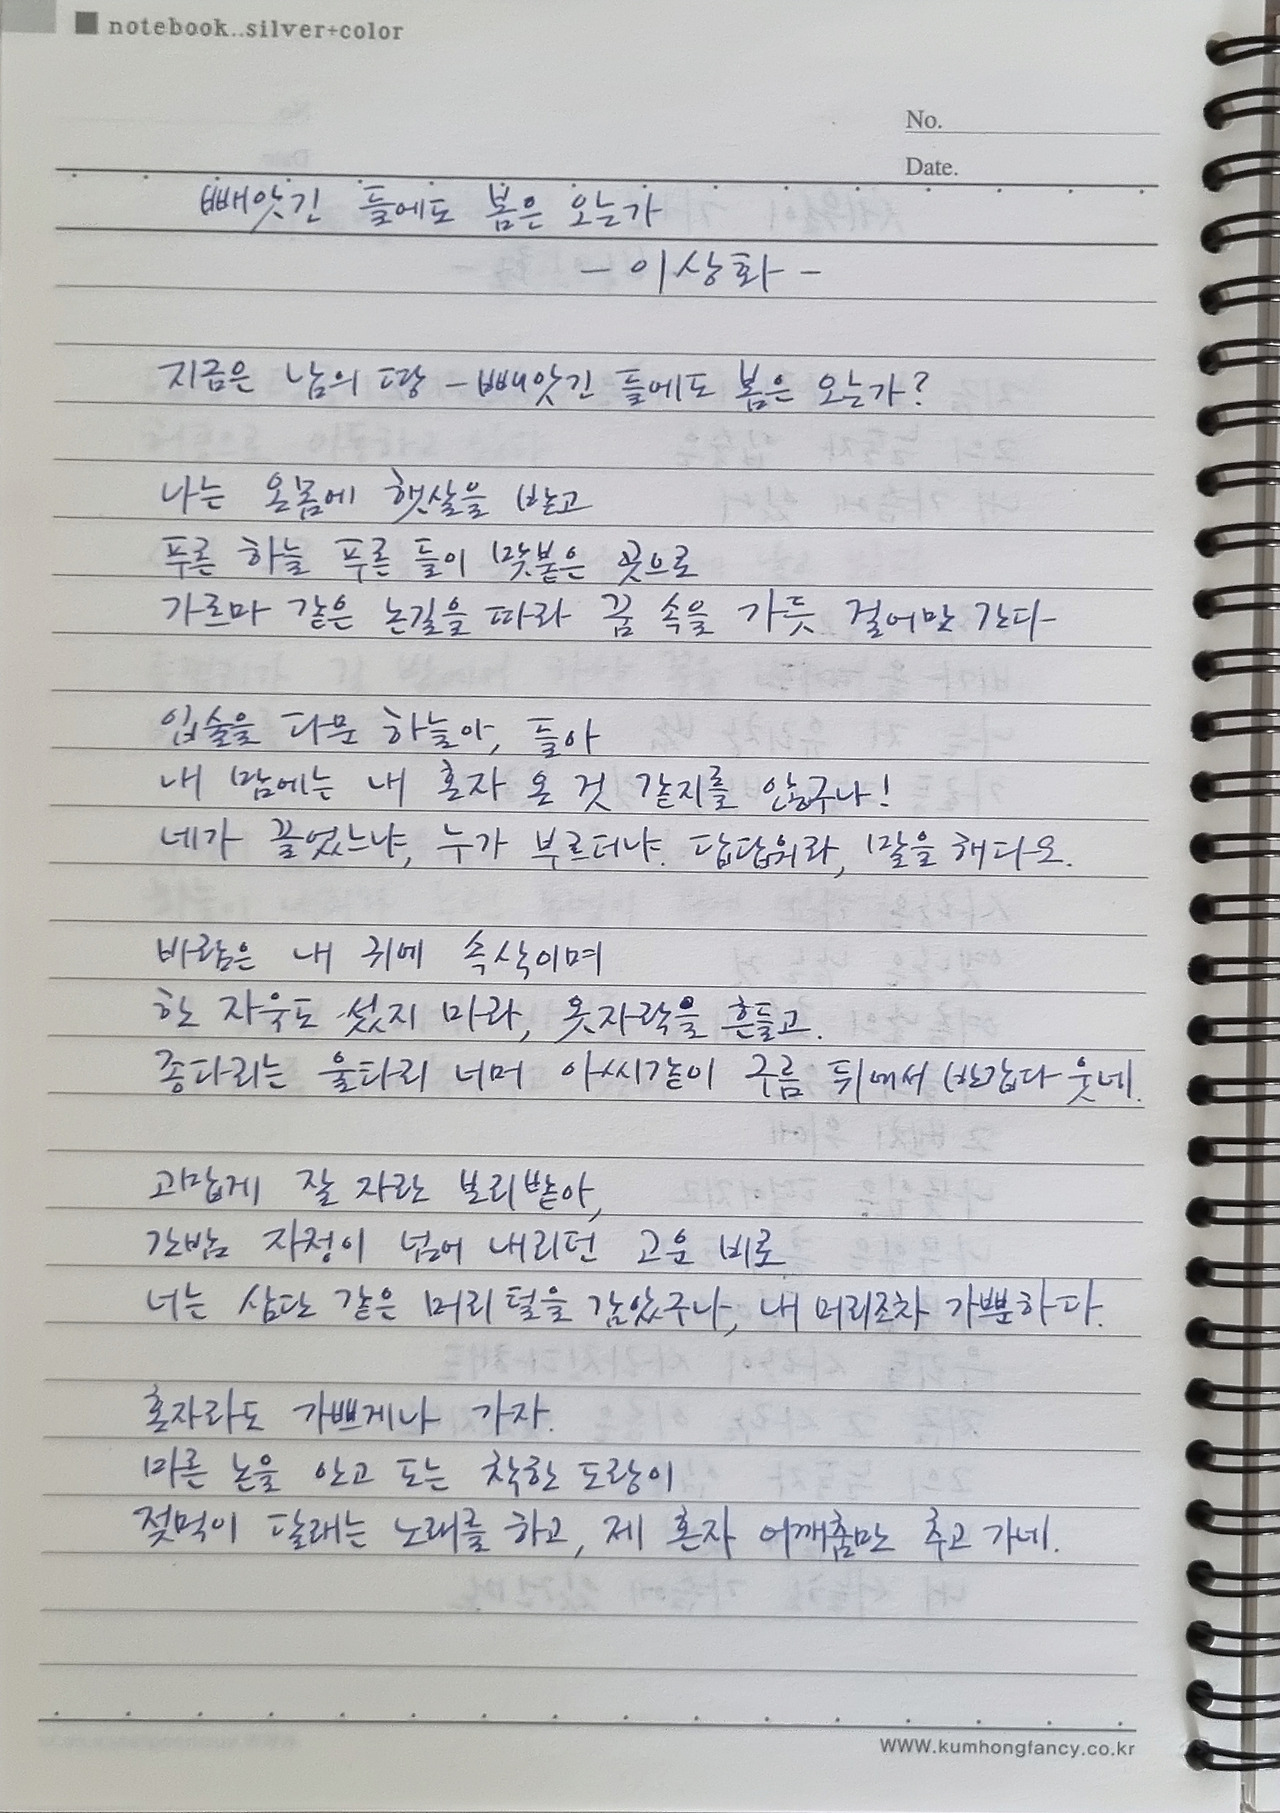 notebook..silver+color
No.
Date.
빼앗긴 들에도 봄은 오는가
- 이상화 -
지금은 남의 땅 - 빼앗긴 들에도 봄은 오는가?
나는 온몸에 햇살을 받고
푸른 하늘 푸른 들이 맞붙은 곳으로
가르마 같은 논길을 따라 꿈 속을 가듯 걸어만 간다-
입술을 다문 하늘아, 들아
내 맘에는 내 혼자 온 것 같지를 않구나!
네가 끌었느냐, 누가 부르더냐. 답답워라, 말을 해다오.
바람은 내 귀에 속삭이며
한 자욱도 섰지 마라, 옷자락을 흔들고.
종다리는 울타리 너머 아씨같이 구름 뒤에서 반갑다 웃네.
고맙게 잘 자란 보리밭아,
간밤 자정이 넘어 내리던 고운 비로
너는 삼단 같은 머리털을 감았구나, 내 머리조차 가뿐하다.
혼자라도 가쁘게나 가자.
마른 논을 안고 도는 착한 도랑이
젖먹이 달래는 노래를 하고, 제 혼자 어깨춤만 추고 가네.
www.kumhongfancy.co.kr